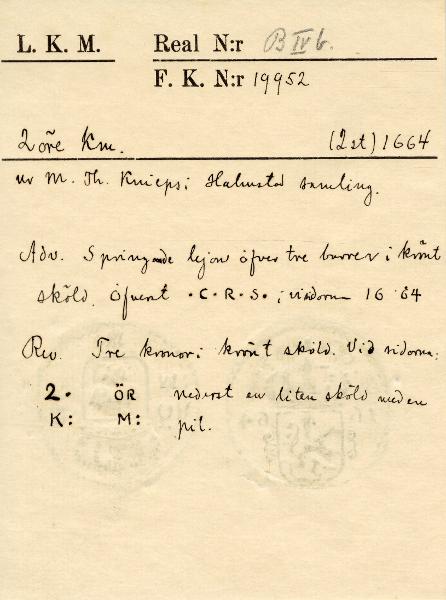 L. K. M. Real N:r B IV b.
F. K. N:r 19952
2 öre Km. (2 st) 1664
ur M. Th. Knieps i Halmstad samling.
Adv. Springande lejon öfver tre barrer i krönt
sköld. Öfverst ·C·R·S·; i sidorna 16 64
Rev. Tre kronor i krönt sköld. Vid sidorna:
2· ÖR nederst en liten sköld med en
K: M: pil.